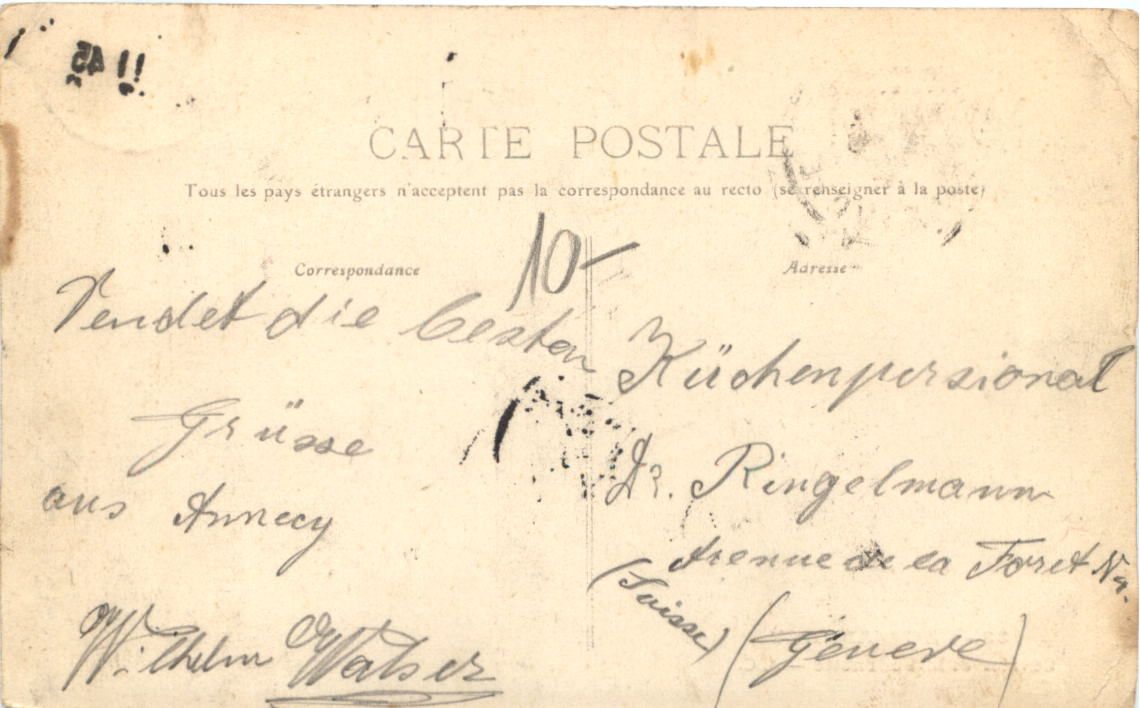 11 45
CARTE POSTALE
Tous les pays étrangers n'acceptent pas la correspondance au recto (se renseigner à la poste)
10-
Correspondance
Vendet die besten
Grüsse
aus Annecy
Wilhelm Walser
Adresse
Küchenpersional
Dr. Ringelmann
Avenue de la Foret Nr.
(Suisse)
(Géneve)